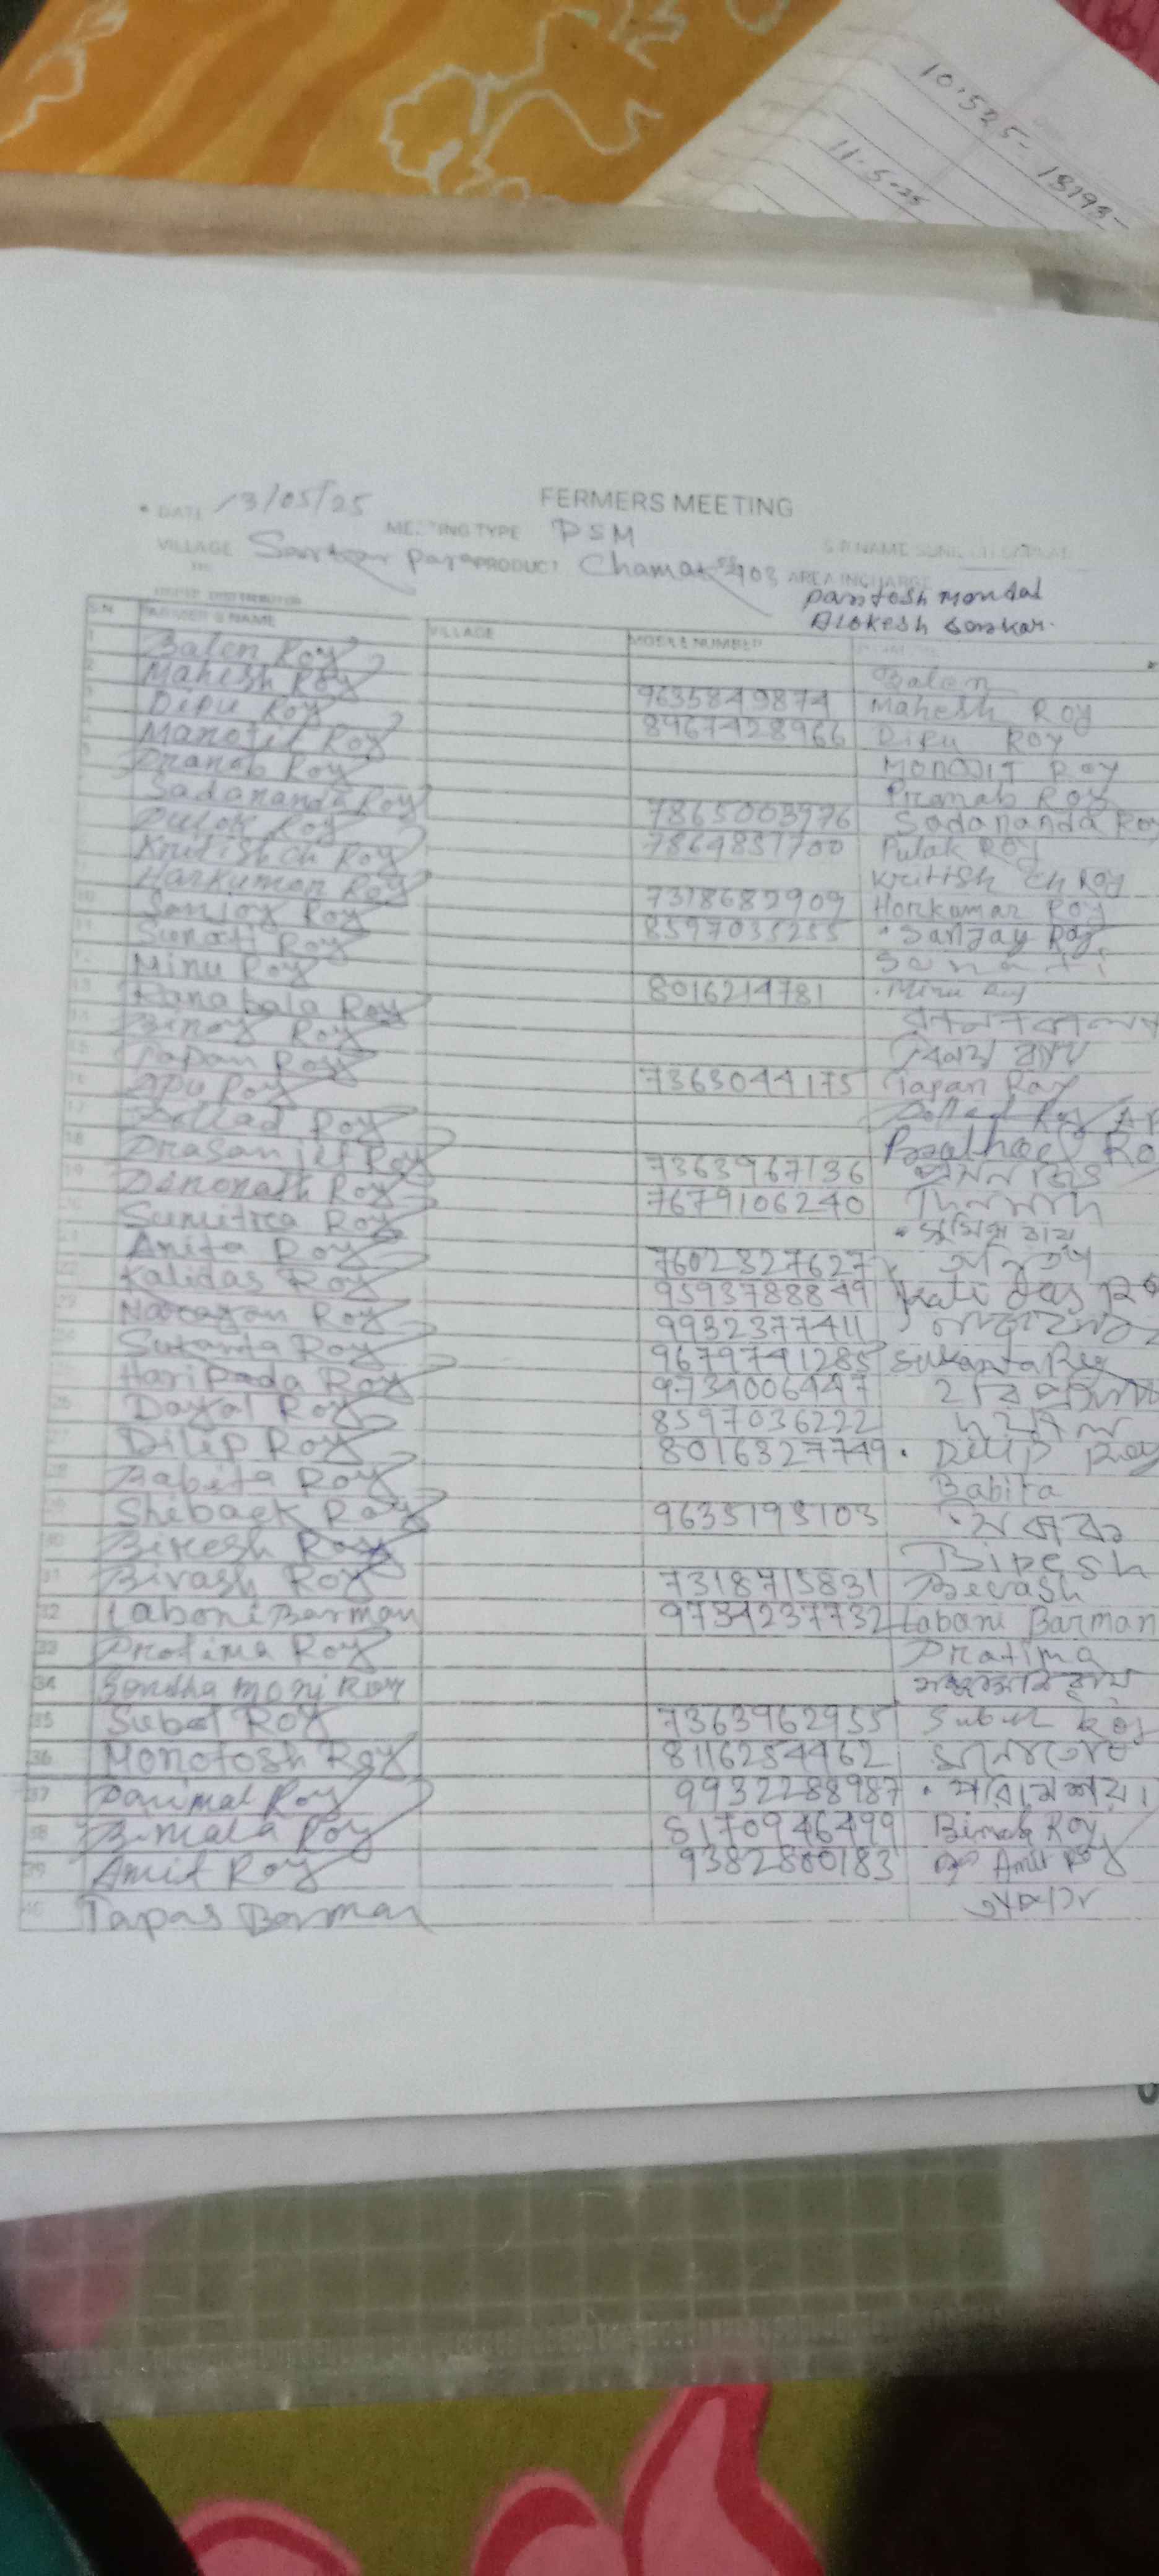 10.5.25- 18193-
11.5.25
FERMERS MEETING
DATE 13/05/25
MEETING TYPE PSM
VILLAGE Sarkar para PRODUCT Chamak AREA INCHARGE
Paritosh Mondal
Alokesh Sarkar.
S.N FARMER'S NAME VILLAGE MOBILE NUMBER
1 Balen Roy Balen
2 Mahesh Roy 9635849874 Mahesh Roy
3 Dipu Roy 8967428966 Dipu Roy
4 Manojit Roy MONOJIT Roy
5 Pranab Roy Pranab Roy
Sadananda Roy 7865003976 Sadananda Roy
Pulok Roy 7864831700 Pulak Roy
Kritish ch Roy Kritish ch Roy
Harkumar Roy 7318682909 Horkumar Roy
10 Sanjoy Roy 8597035255 Sanjay Roy
11 Sunati Roy Sunati
12 Minu Roy 8016214781 Minu Roy
13 Ranabala Roy
14 Binoy Roy বিনয় রায়
15 Tapan Roy 7363044175 Tapan Roy
16 Apu Roy
17 Pollad Roy Roy
18 Prasanjit Roy 7363967136
19 Dinonath Roy 7679106240
20 Sumitra Roy সুমিত্রা রায়
21 Anita Roy 7602827627
22 Kalidas Roy 9593788849 Kali das Ro
23 Narayan Roy 9932377411
24 Sukanta Roy 9679741285 Sukanta Roy
25 Haripada Roy 9734006447
26 Dayal Roy 8597036222 দয়াল
27 Dilip Roy 8016327749 Dilip Roy
28 Babita Roy Babita
29 Shibaek Roy 9635193103
30 Biresh Roy Biresh
31 Bivash Roy 7318715831 Bevash
32 Laboni Barman 9734237732 Labani Barman
33 Protima Roy Pratima
34 Sondha moni Roy
35 Subol Roy 7363962955 Subol Roy
36 Monotosh Roy 8116254462
37 Parimal Roy 9932288987
38 Bimala Roy 8170946499 Bimala Roy
39 Amit Roy 9382800183 Amit Roy
40 Tapas Barman তাপস